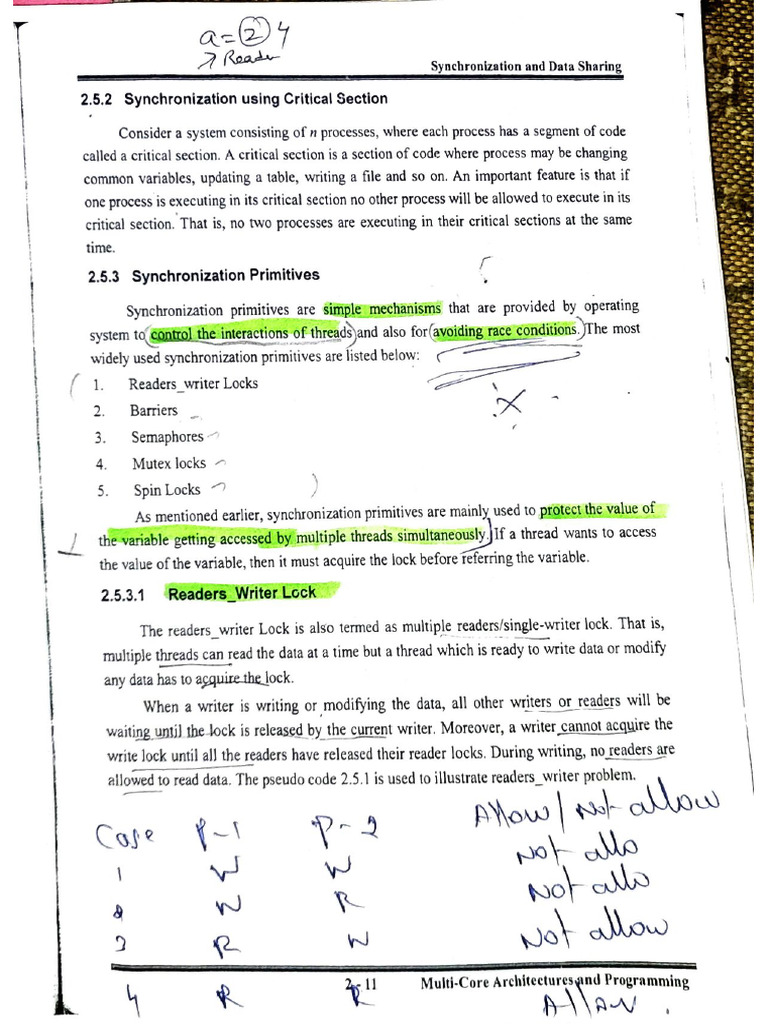 a = 2 4
→ Reader
Synchronization and Data Sharing
2.5.2 Synchronization using Critical Section
Consider a system consisting of n processes, where each process has a segment of code
called a critical section. A critical section is a section of code where process may be changing
common variables, updating a table, writing a file and so on. An important feature is that if
one process is executing in its critical section no other process will be allowed to execute in its
critical section. That is, no two processes are executing in their critical sections at the same
time.
2.5.3 Synchronization Primitives
Synchronization primitives are simple mechanisms that are provided by operating
system to control the interactions of threads and also for avoiding race conditions. The most
widely used synchronization primitives are listed below:
1. Readers_writer Locks
2. Barriers
3. Semaphores
4. Mutex locks
5. Spin Locks
As mentioned earlier, synchronization primitives are mainly used to protect the value of
the variable getting accessed by multiple threads simultaneously. If a thread wants to access
the value of the variable, then it must acquire the lock before referring the variable.
2.5.3.1 Readers_Writer Lock
The readers_writer Lock is also termed as multiple readers/single-writer lock. That is,
multiple threads can read the data at a time but a thread which is ready to write data or modify
any data has to acquire the lock.
When a writer is writing or modifying the data, all other writers or readers will be
waiting until the lock is released by the current writer. Moreover, a writer cannot acquire the
write lock until all the readers have released their reader locks. During writing, no readers are
allowed to read data. The pseudo code 2.5.1 is used to illustrate readers_writer problem.
Case P-1 P-2 Allow / Not allow
1 W W Not allo
2 W R Not allo
3 R W Not allow
2 - 11 Multi-Core Architectures and Programming
4 R R Allow